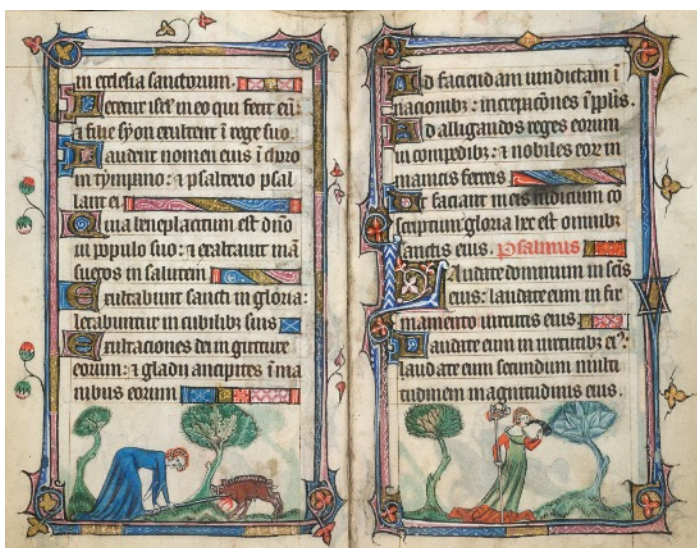 in ecclesia sanctorum.
Letetur isrł in eo qui fecit eū:
⁊ filie syon exultent ī rege suo.
Laudent nomen eius ī choro
in tympano: ⁊ psalterio psal
lant ei
Quia beneplacitum est dño
in populo suo: ⁊ exaltauit mā
suetos in salutem
Exultabunt sancti in gloria:
letabuntur in cubilibȝ suis
Exultaciones dei in gutture
eorum: ⁊ gladii ancipites ī ma
nibus eorum
Ad faciendam uindictam ī
nacionibȝ: increpacōnes ī pplīs.
Ad alligandos reges eorum
in compedibȝ: ⁊ nobiles eoꝝ in
manicis ferreis
Ut faciant in eis iudicium cō
scriptum: gloria hec est omnibȝ
sanctis eius. Psalmus
Laudate dominum in scīs
eius: laudate eum in fir
mamento uirtutis eius.
Laudate eum in uirtutibȝ eiꝰ:
laudate eum secundum multi
tudinem magnitudinis eius.